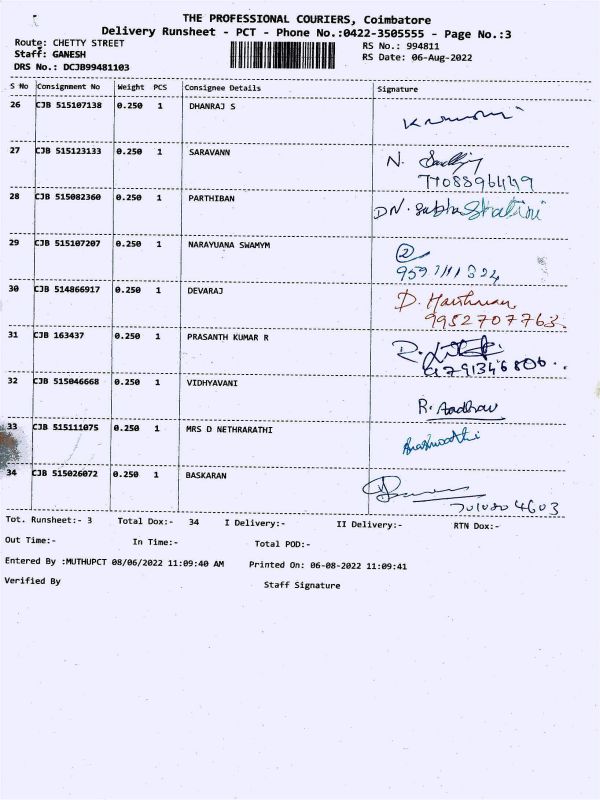 THE PROFESSIONAL COURIERS, Coimbatore
Delivery Runsheet - PCT - Phone No.:0422-3505555 - Page No.:3
Route: CHETTY STREET RS No.: 994811
Staff: GANESH RS Date: 06-Aug-2022
DRS No.: DCJB99481103
S No Consignment No Weight PCS Consignee Details Signature
26 CJB 515107138 0.250 1 DHANRAJ S
27 CJB 515123133 0.250 1 SARAVANN N.
28 CJB 515082360 0.250 1 PARTHIBAN DN. Subha Shalini
29 CJB 515107207 0.250 1 NARAYUANA SWAMYM
30 CJB 514866917 0.250 1 DEVARAJ D.
9952707763.
31 CJB 163437 0.250 1 PRASANTH KUMAR R R.
9791346806
32 CJB 515046668 0.250 1 VIDHYAVANI
R. Aadhav
33 CJB 515111075 0.250 1 MRS D NETHRARATHI
34 CJB 515026072 0.250 1 BASKARAN
Tot. Runsheet:- 3 Total Dox:- 34 I Delivery:- II Delivery:- RTN Dox:-
Out Time:- In Time:- Total POD:-
Entered By :MUTHUPCT 08/06/2022 11:09:40 AM Printed On: 06-08-2022 11:09:41
Verified By Staff Signature